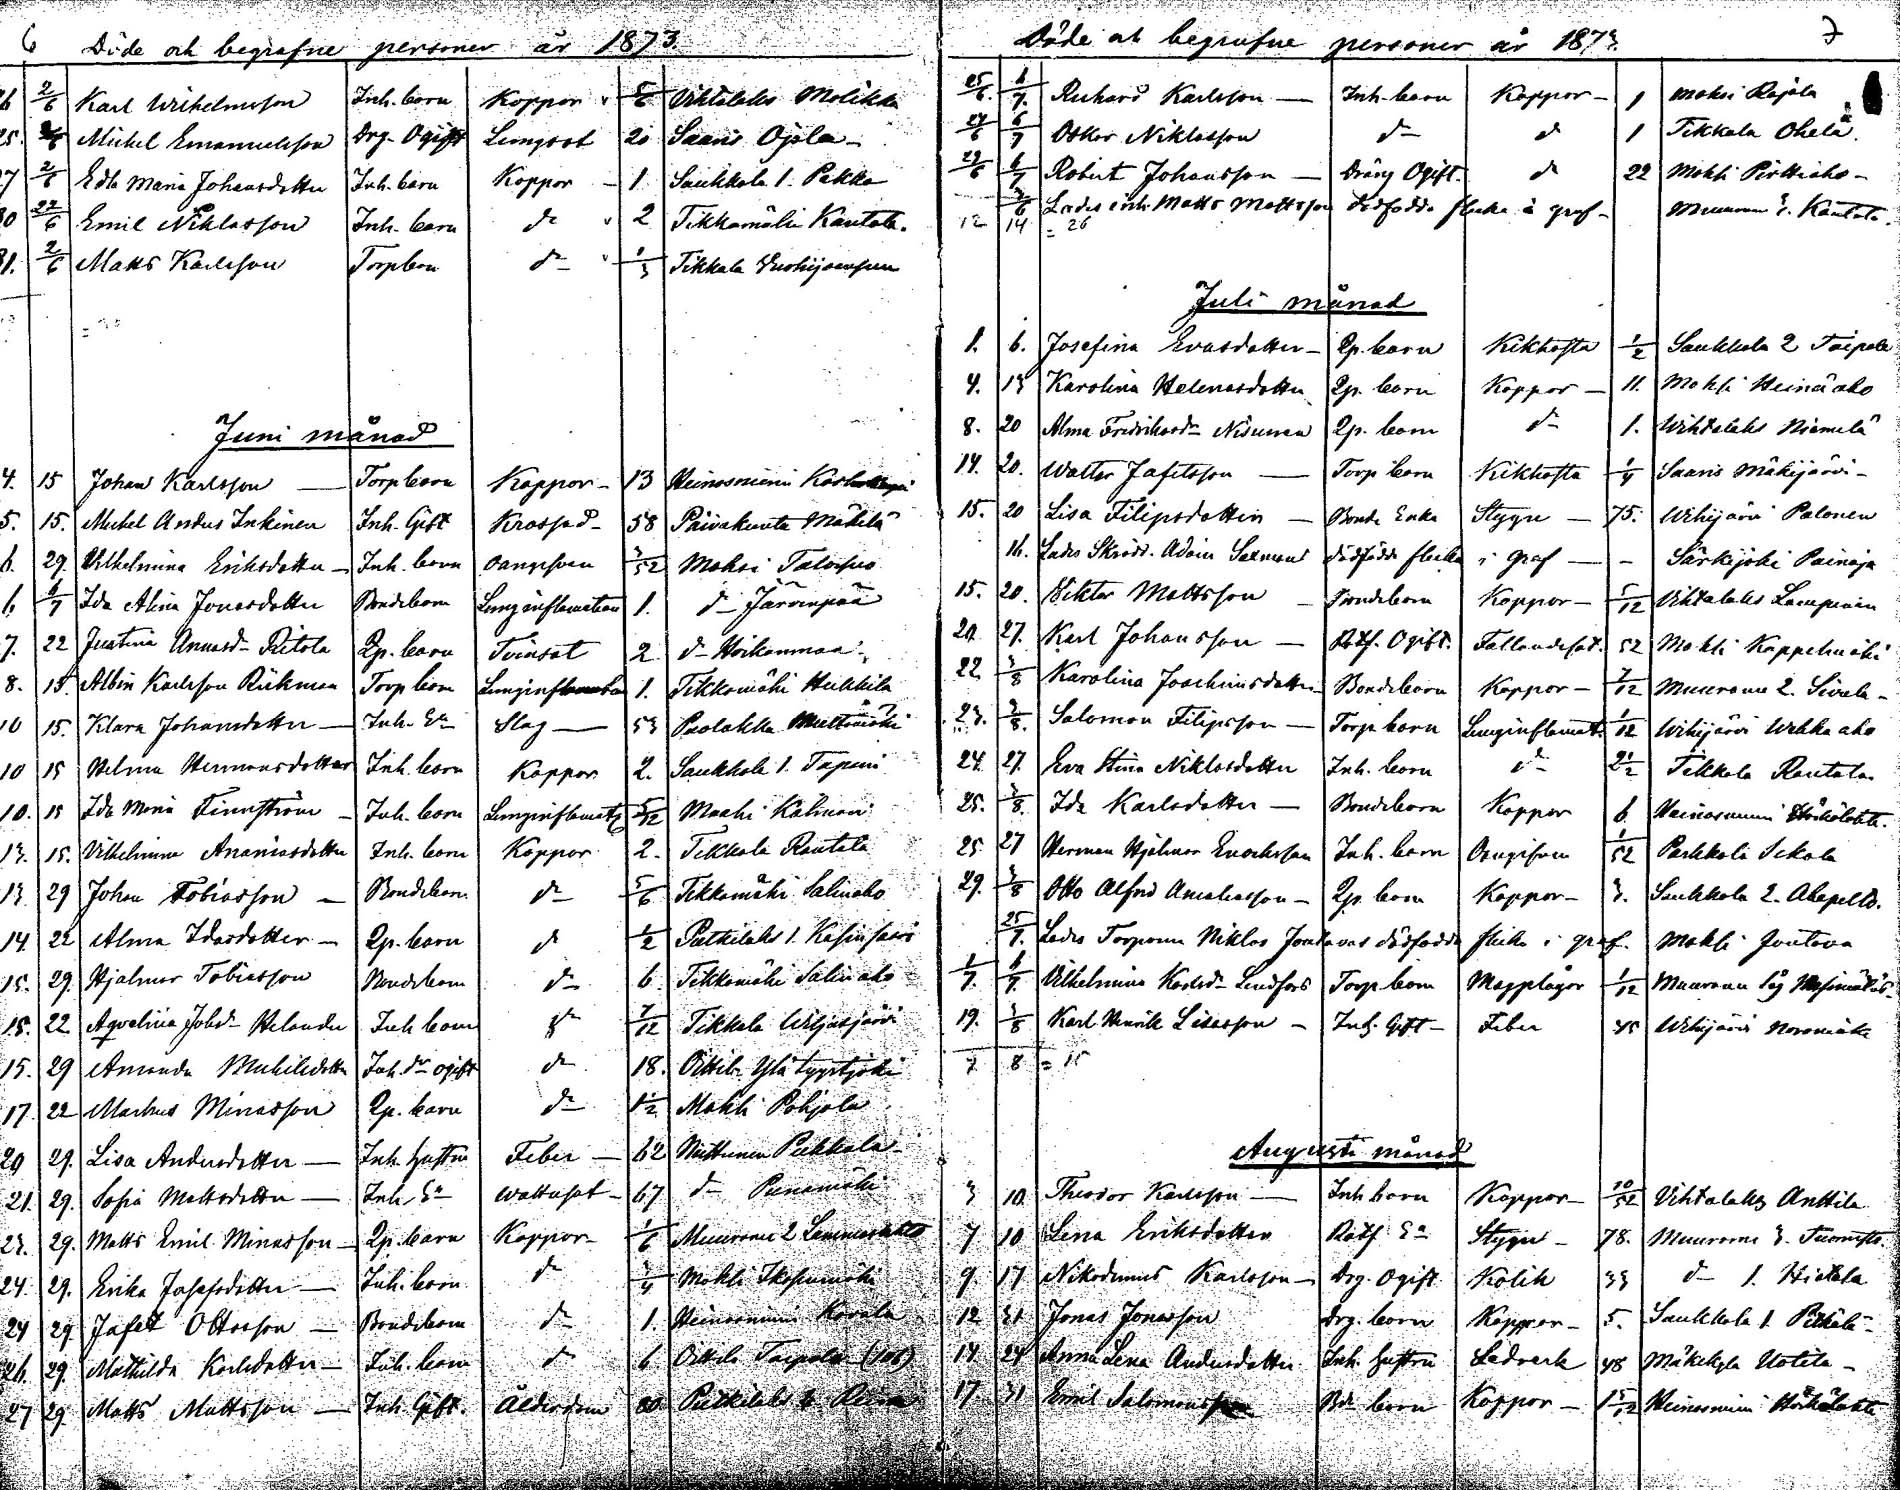 6 Döde och begrafne personer år 1873.
26 2/6 Karl Wilhelmsson Inh. barn Koppor 5/6 Vihtalaks Molikka
25. 2/6 Michel Emanuelsson Drg. Ogift Lungsot 20 Saaris Ojala
27 2/6 Edla Maria Johansdotter Inh. barn Koppor 1. Saukkola 1. Pekka
30 22/6 Emil Niklasson Inh. barn d- 2 Tikkamäki Rautala.
31. 2/6 Matts Karlsson Torpbarn d- 1/3 Tikkala
Juni månad
4. 15 Johan Karlsson — Torpbarn Koppor- 13 Heinosniemi
5. 15. Michel Andus Inkinen Inh. Gift Krossad- 58 Päiväkunta Mäkelä
6. 29. Vilhelmina Eriksdotter Inh. barn Oangifven 3/52 Moksi Talaspuo
6 6/7 Ida Alina Jonasdotter Bondebarn Lunginflamation 1. d- Järvenpää
7. 22 Justina Annasd- Ritola Lp. barn Tvinsot 2 d- Hoikanmaa
8. 15. Albin Karlsson Rickman Torp barn Lunginflammation 1. Tikkamäki Heikkilä
10 15. Klara Johansdotter — Inh. Ea Slag — 53 Puolakka
10 15 Helma Hermansdotter Inh. barn Koppor 2. Saukkola 1. Tapani
10. 15 Ida Maria Finnström - Inh. barn Lunginflamat. 5/52 Maahi
13. 15. Vilhelmina Ananiasdotter Inh. barn Koppor 2. Tikkala Rautala
13. 29 Johan Tobiasson - Bondebarn d- 5/6 Tikkamäki Salinaho
14. 22 Alma Idasdotter - Lp. barn d 1/2 Putkilaks 1. Kasinsaari
15. 29. Hjalmar Tobiasson Bondebarn d- 6. Tikkamäki Salinaho
15. 22 Aqvelina Johd- Helander Inh barn d- 7/12 Tikkala Viljasjärvi
15. 29 Amanda Michelsdotter Inh. dr ogift d- 18. Oittila Ylä Tyystjoki
17. 22 Markus Minasson Lp. barn d- 1 1/2 Mokli Pohjola
20 29. Lisa Andersdotter — Inh. hustru Feber — 62 Niittunen Pukkala
21. 29. Sofia Mattsdotter — Inh. Ea Wattusot - 67 d- Punamäki
23. 29. Matts Emil Minasson - Lp. barn Koppor- 1/6 Muurame 2
24. 29. Erika Josefsdotter — Inh. barn d- 3/4 Mokli
24 29 Jafet Ottosson — Bondebarn d- 1. Heinosniemi Korola
26. 29. Mathilda Karlsdotter — Inh. barn d 6 Oittila Taipola (106)
27 29 Matts Mattsson — Inh. Gift. Ålderdom 80 Putkilaks
Döde och begrafne personer år 1873. 7
25/6. 6/7. Richard Karlsson — Inh. barn Koppor- 1 Moksi Rajala
27/6 6/7 Oskar Niklasson d- d 1 Tikkala Ohela.
29/6 6/7 Robert Johansson — Dräng Ogift. d 22 Mokli Pirttiaho -
2/6 Lades inh. Matts Mattsson dödfödda flicka i graf- Muurame 3. Rautala.
12 14 = 26
Juli månad
1. 6. Josefina Evasdotter - Lp. barn Kikhosta 1/2 Saukkola 2 Taipale
4. 13 Karolina Helenasdotter Lp. barn Koppor — 11. Mokli Heinäaho
8. 20 Alma Fredriksd- Nisunen Lp. barn d- 1. Wihtalaks Niemelä
14. 20. Walter Jafetsson — Torp barn Kikhosta 1/4 Saaris Mäkijärvi -
15. 20 Lisa Filipsdotter — Bonde Enka Stygn — 75. Wihijärvi Palonen
16. Lades Skrädd. Adam Salmens dödfödda flicka i graf — - Särkijoki Painaja
15. 20. Viktor Mattsson - Bondebarn Koppor — 5/12 Vihtalaks Lampinen
20. 27. Karl Johansson — Rotf. Ogift. Fallandesot. 52 Mokli Koppelmäki
22 3/8 Karolina Joachimsdotter Bondebarn Koppor - 7/12 Muurame 2. Sivula -
23. 3/8. Salomon Filipsson — Torp barn Lunginflamat. 1/12 Wihijärvi Wehkaaho
24. 27. Eva Stina Niklasdotter Inh. barn d- 2 1/2 Tikkala Rautala
25. 3/8. Ida Karlsdotter — Bondebarn Koppor 6 Heinosniemi
25 27 Herman Hjalmar Enochsson Inh. barn Oangifven 1/52 Parkkola Sikala
29. 3/8 Otto Alfred Amaliasson - Lp. barn Koppor- 3. Saukkola 2. Alapelto.
25/7. Lades Torparen Niklas Joutavas dödfödda flicka i graf. Mokli Joutava
1/7. 6/7. Vilhelmina Karlsd- Lindfors Torp. barn Magplågor 1/12 Muurame Såg
19. 3/8 Karl Henrik Lisasson - Inh. Gift - Feber 45 Wihijärvi Noromäki
7 8 = 15
Augusti månad
3 10. Theodor Karlsson — Inh barn Koppor- 10/52 Vihtalaks Anttila
7 10 Lena Eriksdotter Rotf. Ea Stygn - 78. Muurame 3. Tuomisto
9. 17 Nikodemus Karlsson — Drg. Ogift Kolik 33 d- 1. Hietala
12 31 Jonas Jonasson Drg. barn Koppor- 5. Saukkola 1. Pitkälä -
14 24 Anna Lena Andersdotter Inh. hustru Ledverk 48 Mäkikylä Uotila -
17. 31 Emil Salomonsson Bd- barn Koppor — 1 5/12 Heinosniemi